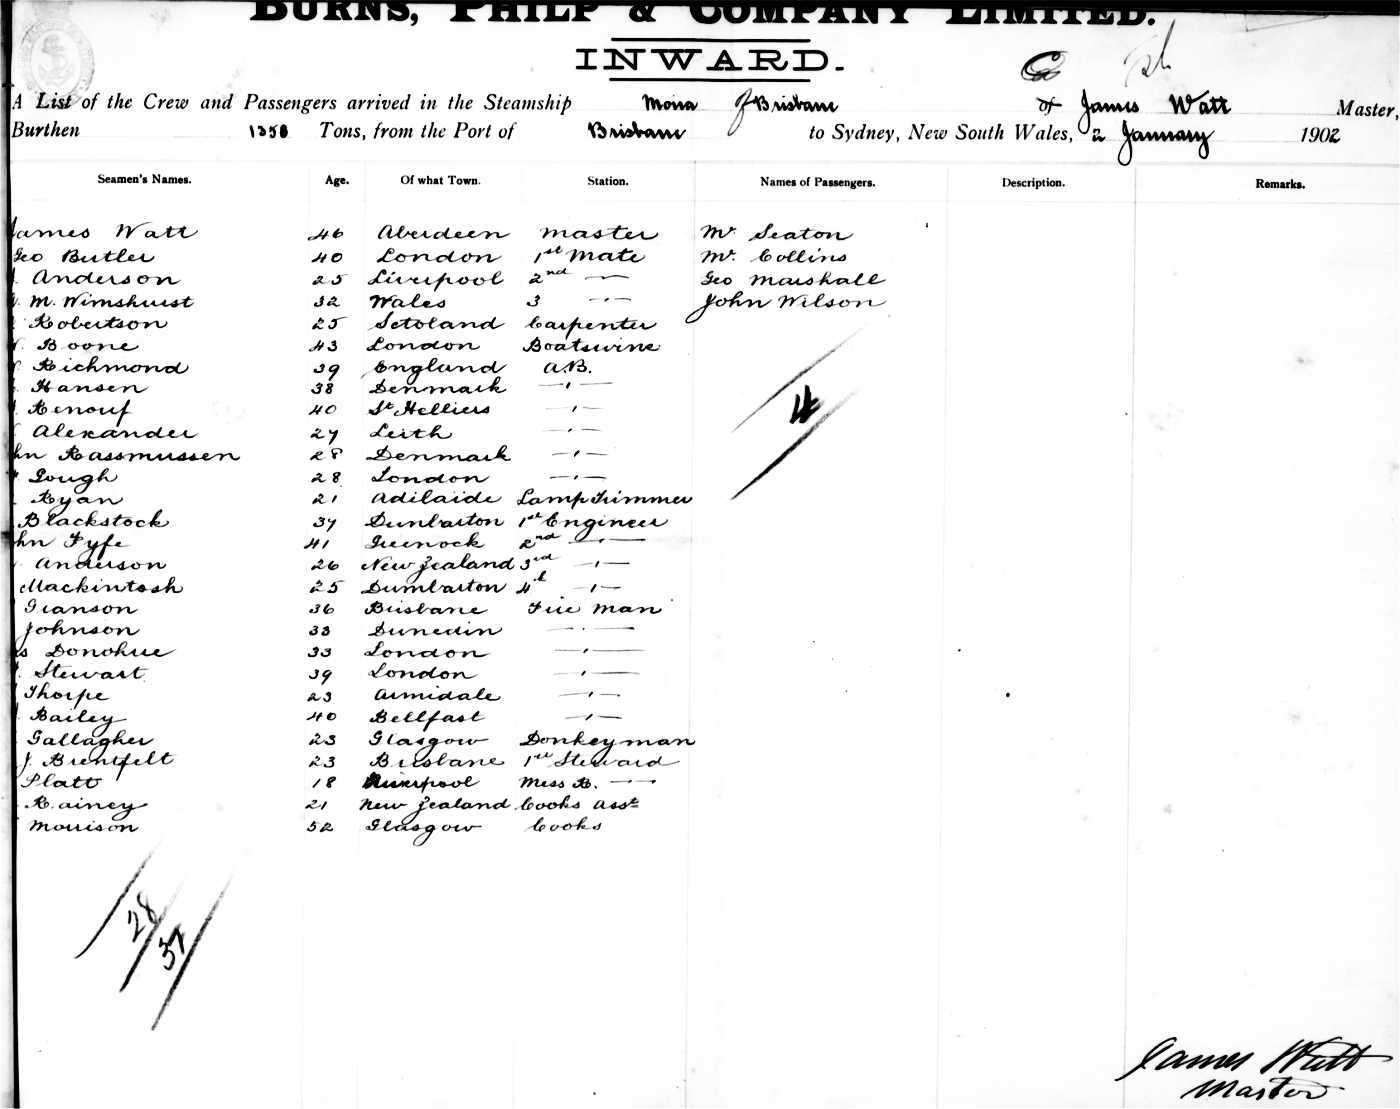 BURNS, PHILP & COMPANY LIMITED.
INWARD.
A List of the Crew and Passengers arrived in the Steamship Moira of Brisbane of James Watt Master,
Burthen 1350 Tons, from the Port of Brisbane to Sydney, New South Wales, 2 January 1902
Seamen's Names. Age. Of what Town. Station. Names of Passengers. Description. Remarks.
James Watt 46 Aberdeen Master Mr. Seaton
Geo Butler 40 London 1st Mate Mr. Collins
Anderson 25 Liverpool 2nd — Geo Marshall
M. Wimshurst 32 Wales 3 —"— John Wilson
Robertson 25 Setoland Carpenter
Boone 43 London Boatswine
Richmond 39 England A.B.
Hansen 38 Denmark —"—
Renouf 40 St Helliers —"—
Alexander 27 Leith —"—
hn Rassmussen 28 Denmark —"—
Gough 28 London —"—
Ryan 21 Adilaide Lamp Trimmer
Blackstock 37 Dunbarton 1st Engineer
hn Fyfe 41 Greenock 2nd —"—
Anderson 26 New Zealand 3rd —"—
Mackintosh 25 Dumbarton 4th —"—
Granson 36 Brisbane Fire Man
Johnson 33 Dunedin —"—
s Donohue 33 London —"—
Stewart 39 London —"—
Thorpe 23 Armidale —"—
Bailey 40 Bellfast —"—
Gallagher 23 Glasgow Donkeyman
J. Brentfelt 23 Brisbane 1st Steward
Platt 18 Liverpool Mess R. —"—
Rainey 21 New Zealand Cooks asst
Morrison 52 Glasgow Cooks
4
28
37
James Watt
Master